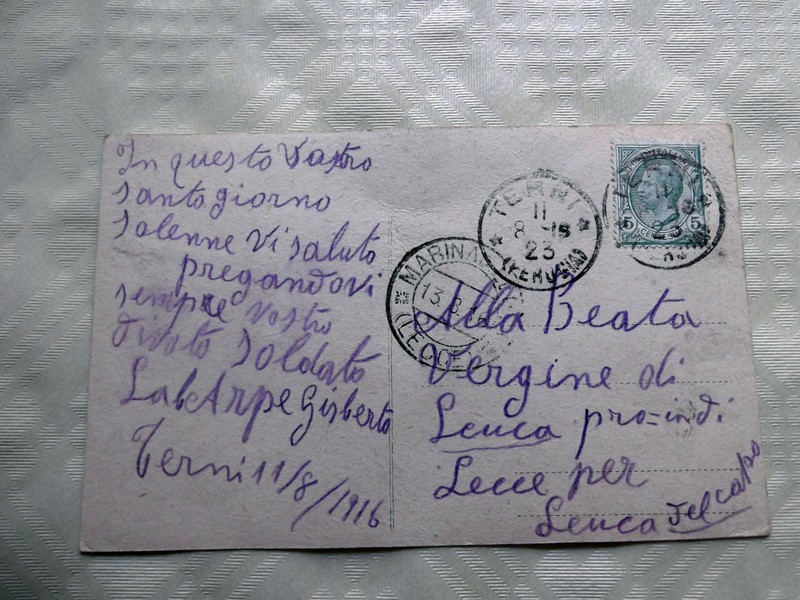 In questo Vostro
Santo giorno
Solenne Vi saluto
pregandovi
sempre Vostro
divoto Soldato
Gisberto
Terni 11/8/1916
TERNI
11
8 16
23
(PERUGIA)
MARINA
13.8
(LECCE)
5 5
Alla Beata
Vergine di
Leuca pro=indi
Lecce per
Leuca del capo